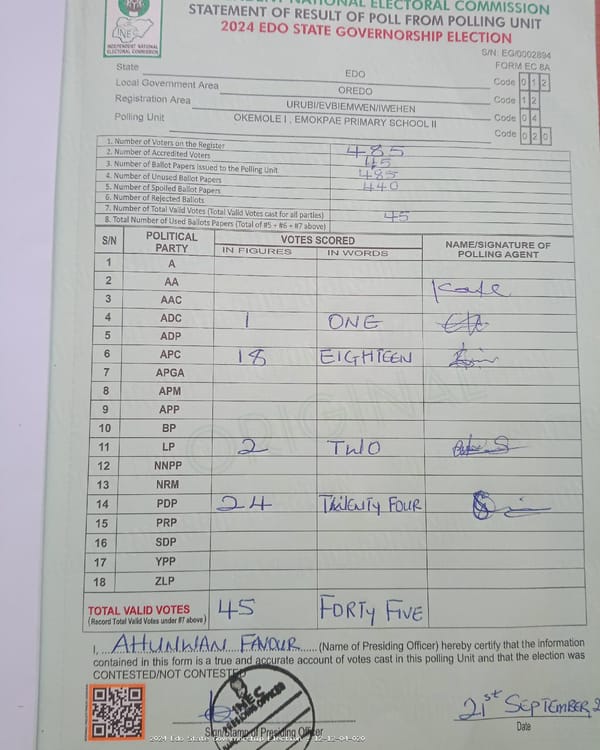 INDEPENDENT NATIONAL ELECTORAL COMMISSION
STATEMENT OF RESULT OF POLL FROM POLLING UNIT
2024 EDO STATE GOVERNORSHIP ELECTION
INEC
INDEPENDENT NATIONAL
ELECTORAL COMMISSION
S/N: EG/0002894
FORM EC 8A
State EDO Code 0 1 2
Local Government Area OREDO Code 1 2
Registration Area URUBI/EVBIEMWEN/IWEHEN Code 0 4
Polling Unit OKEMOLE I , EMOKPAE PRIMARY SCHOOL II Code 0 2 0
1. Number of Voters on the Register 485
2. Number of Accredited Voters 45
3. Number of Ballot Papers Issued to the Polling Unit 485
4. Number of Unused Ballot Papers 440
5. Number of Spoiled Ballot Papers
6. Number of Rejected Ballots
7. Number of Total Valid Votes (Total Valid Votes cast for all parties) 45
8. Total Number of Used Ballots Papers (Total of #5 + #6 + #7 above)
S/N POLITICAL PARTY VOTES SCORED NAME/SIGNATURE OF POLLING AGENT
IN FIGURES IN WORDS
1 A
2 AA Kate
3 AAC
4 ADC 1 ONE
5 ADP
6 APC 18 EIGHTEEN
7 APGA
8 APM
9 APP
10 BP
11 LP 2 TWO
12 NNPP
13 NRM
14 PDP 24 TWENTY FOUR
15 PRP
16 SDP
17 YPP
18 ZLP
ORIGINAL
TOTAL VALID VOTES 45 FORTY FIVE
(Record Total Valid Votes under #7 above)
I, AHUNWAN FAVOUR (Name of Presiding Officer) hereby certify that the information
contained in this form is a true and accurate account of votes cast in this polling Unit and that the election was
CONTESTED/NOT CONTESTED
INEC
PRESIDING OFFICER
21st SEPTEMBER, 2
Sign/Stamp of Presiding Officer Date
2024 Edo State Governorship Election - 12-12-04-020